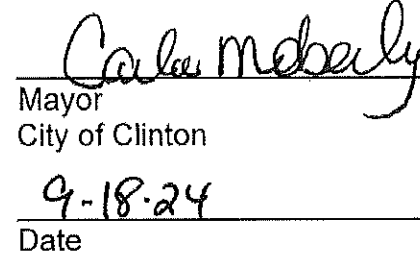 Carla Moberly
Mayor
City of Clinton
9-18-24
Date